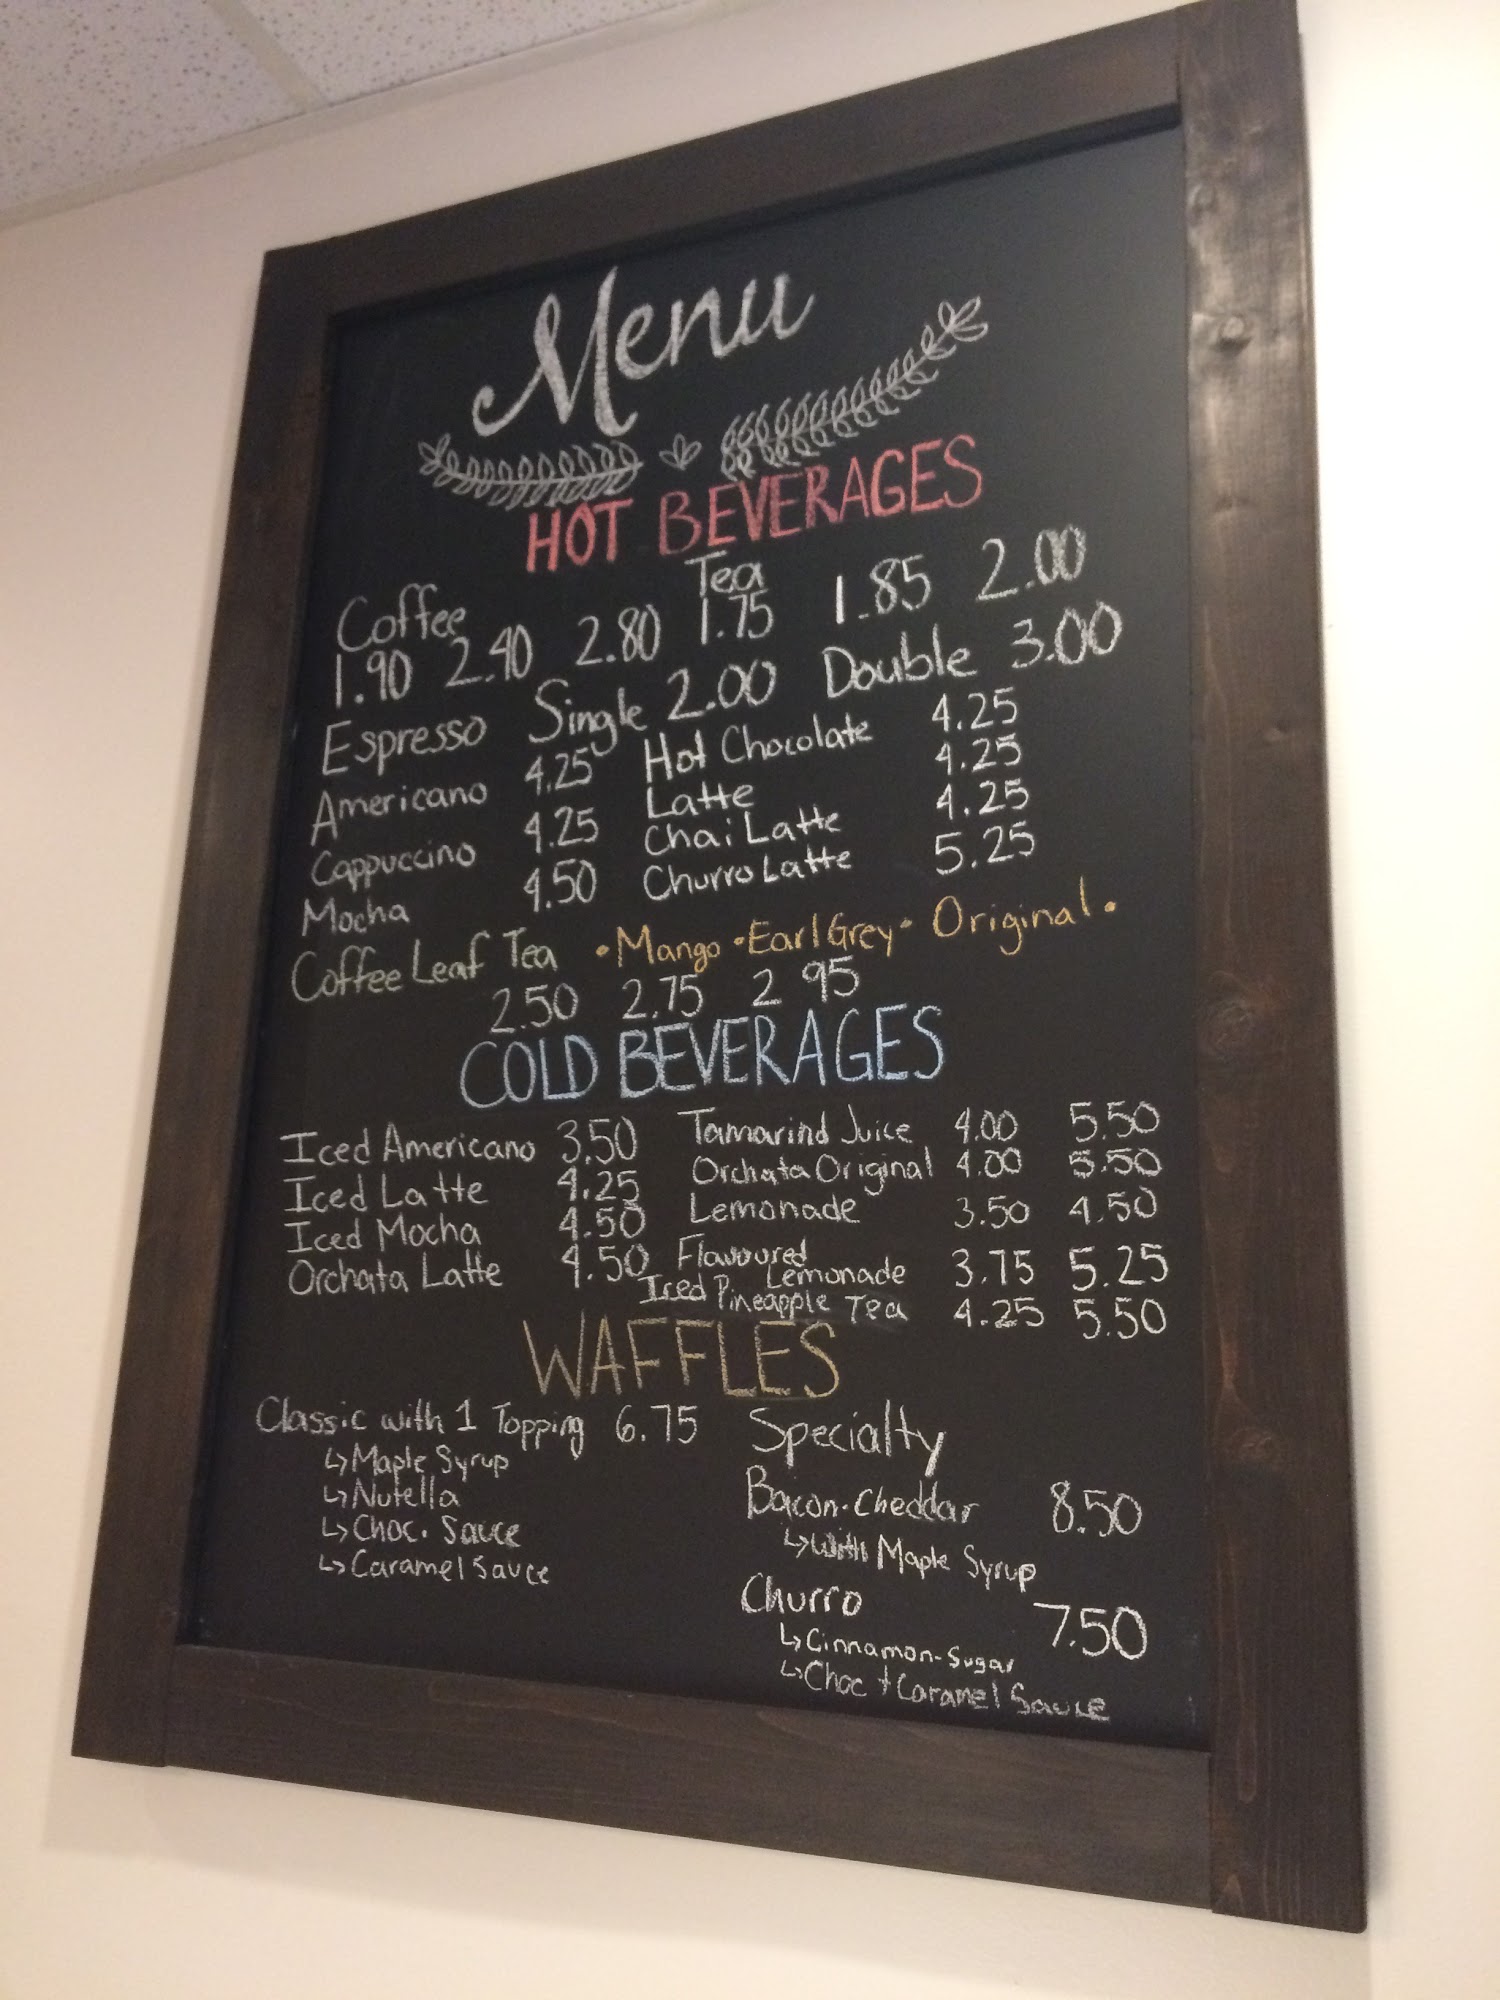 Menu
HOT BEVERAGES
Coffee Tea
1.90 2.40 2.80 1.75 1.85 2.00
Espresso Single 2.00 Double 3.00
Americano 4.25 Hot Chocolate 4.25
Cappuccino 4.25 Latte 4.25
Mocha 4.50 Chai Latte 4.25
Churro Latte 5.25
Coffee Leaf Tea • Mango • Earl Grey • Original •
2.50 2.75 2 95
COLD BEVERAGES
Iced Americano 3.50 Tamarind Juice 4.00 5.50
Iced Latte 4.25 Orchata Original 4.00 5.50
Iced Mocha 4.50 Lemonade 3.50 4.50
Orchata Latte 4.50 Flavoured
Lemonade 3.75 5.25
Iced Pineapple Tea 4.25 5.50
WAFFLES
Classic with 1 Topping 6.75
↳ Maple Syrup
↳ Nutella
↳ Choc. Sauce
↳ Caramel Sauce
Specialty
Bacon-Cheddar 8.50
↳ With Maple Syrup
Churro 7.50
↳ Cinnamon-Sugar
↳ Choc + Caramel Sauce